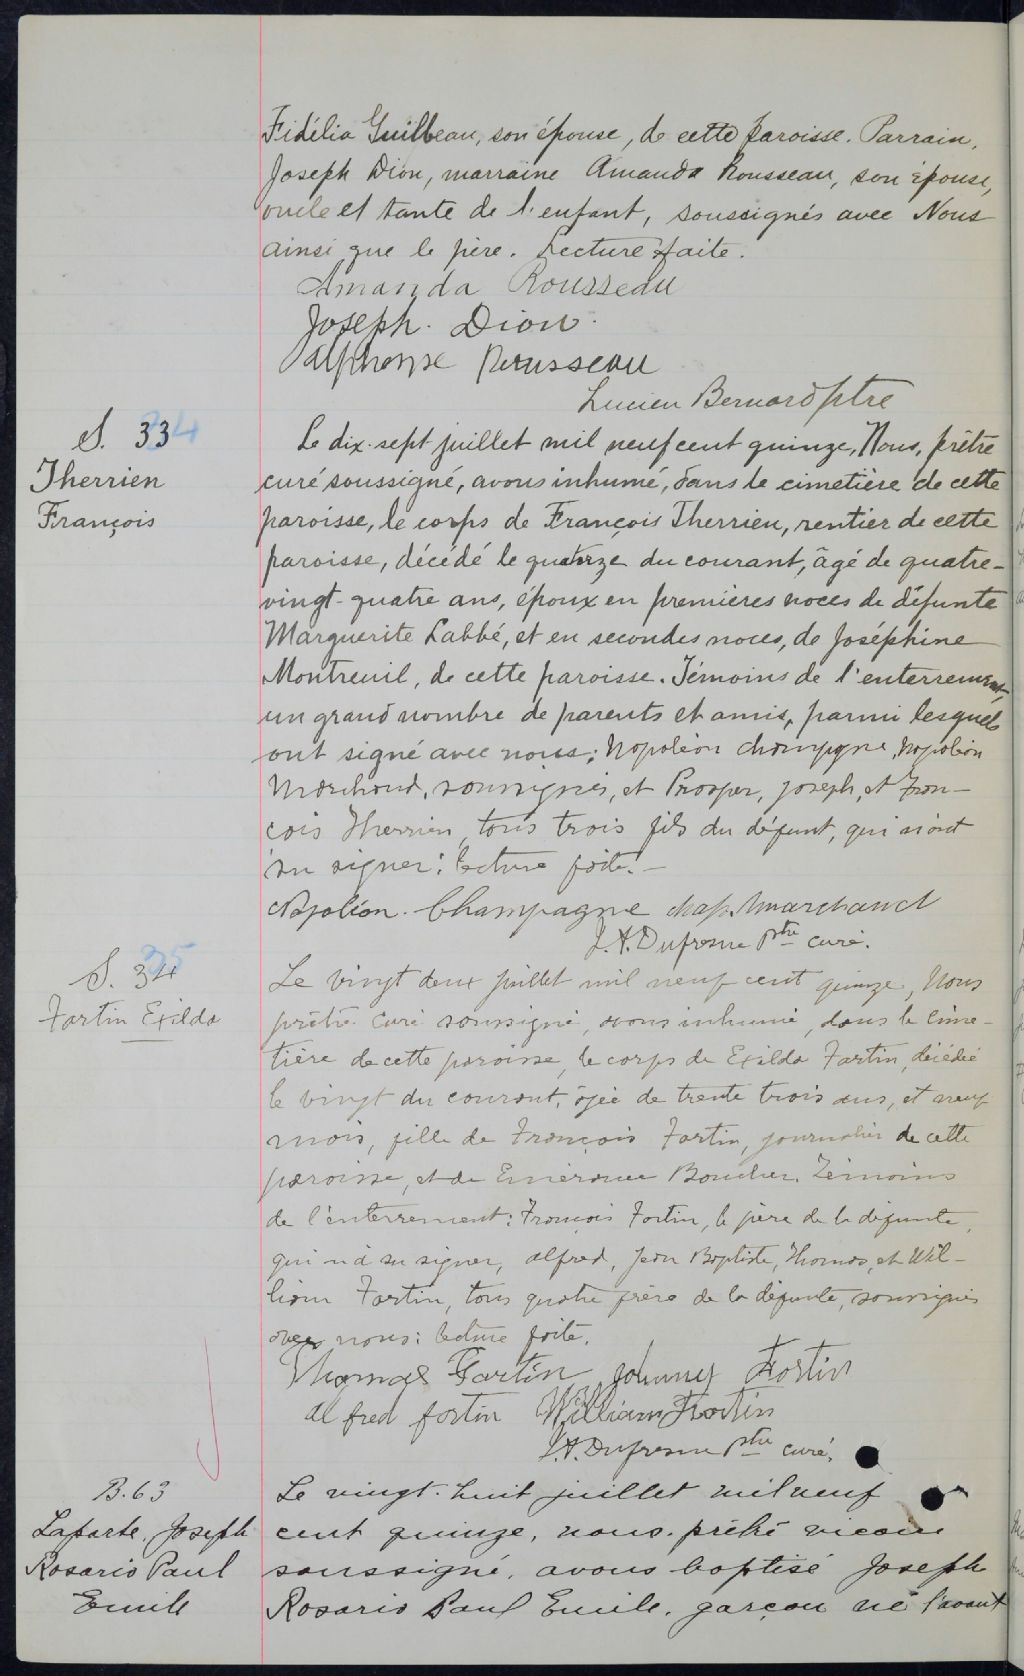 Fidélia Guilbeau, son épouse, de cette paroisse. Parrain,
Joseph Dion, marraine Amanda Rousseau, son épouse,
oncle et tante de l'enfant, soussignés avec Nous
ainsi que le père. Lecture faite.
Amanda Rousseau
Joseph. Dion.
Alphonse Rousseau
Lucien Bernard ptre
S. 33 34
Therrien
François
Le dix-sept juillet mil neuf cent quinze, Nous, prêtre
curé soussigné, avons inhumé, dans le cimetière de cette
paroisse, le corps de François Therrien, rentier de cette
paroisse, décédé le quatorze du courant, âgé de quatre-
vingt-quatre ans, époux en premières noces de défunte
Marguerite Labbé, et en secondes noces, de Joséphine
Montreuil, de cette paroisse. Témoins de l'enterrement,
un grand nombre de parents et amis, parmi lesquels
ont signé avec nous: Napoléon Champagne, Napoléon
Marchand, soussignés, et Prosper, Joseph, et Fran-
cois Therrien, tous trois fils du défunt, qui n'ont
su signer: lecture faite.-
Napoléon. Champagne Nap. Marchand
J.A. Dufresne Ptre curé.
S. 34 35
Fortin Exilda
Le vingt deux juillet mil neuf cent quinze, Nous
prêtre curé soussigné, avons inhumé, dans le cime-
tière de cette paroisse, le corps de Exilda Fortin, décédée
le vingt du courant, âgée de trente trois ans, et neuf
mois, fille de François Fortin, journalier de cette
paroisse, et de Emérance Boucher. Témoins
de l'enterrement: François Fortin, le père de la défunte,
qui n'a su signer, Alfred, Jean Baptiste, Thomas, et Wil-
liam Fortin, tous quatre frère de la défunte, soussignés
avec nous: lecture faite.
Thomas Fortin Johnny Fortin
Alfred fortin William Fortin
J.A. Dufresne Ptre curé.
B. 63
Laparte, Joseph
Rosario Paul
Emile
Le vingt-huit juillet mil neuf
cent quinze, nous, prêtre vicaire
soussigné, avons baptisé Joseph
Rosario Paul Emile, garçon né l'avant